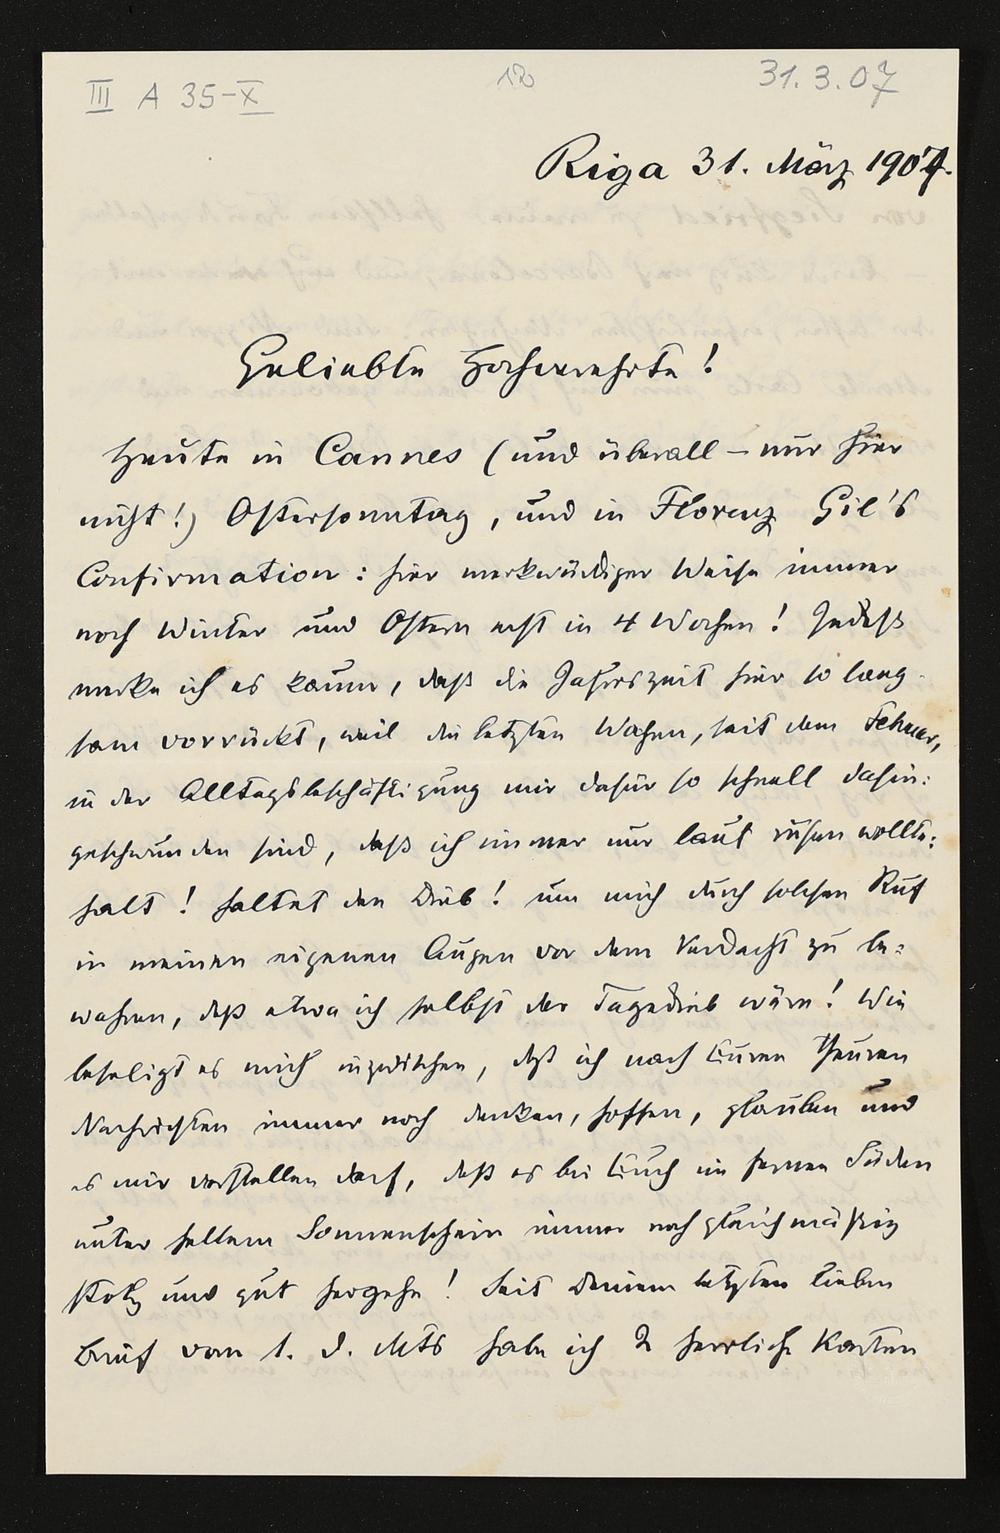 III A 35-X
12
31.3.07
Riga 31. März 1907.
Geliebte Hochverehrte!
Heute in Cannes (und überall – nur hier
nicht!) Ostersonntag, und in Florenz Gil's
Confirmation: hier merkwürdiger Weise immer
noch Winter und Ostern erst in 4 Wochen! Indeß
merke ich es kaum, daß die Jahreszeit hier so lang-
sam vorrückt, weil die letzten Wochen, seit dem
in der Alltagsbeschäftigung mir dafür so schnell dahin:
geschwunden sind, daß ich immer nur laut rufen wollte:
halt! haltet den Dieb! um mich durch solchen Ruf
in meinen eigenen Augen vor dem Verdacht zu be-
wahren, daß etwa ich selbst der Tagedieb wäre! Wie
beseligt es mich inzwischen, daß ich nach Euren Theuren
Nachrichten immer noch denken, hoffen, glauben und
es mir vorstellen darf, daß es bei Euch im fernen Süden
unter hellem Sonnenschein immer noch gleichmäßig
stolz und gut hergehe! Seit Deinem letzten lieben
Brief vom 1. d. Mts habe ich 2 herrliche Karten